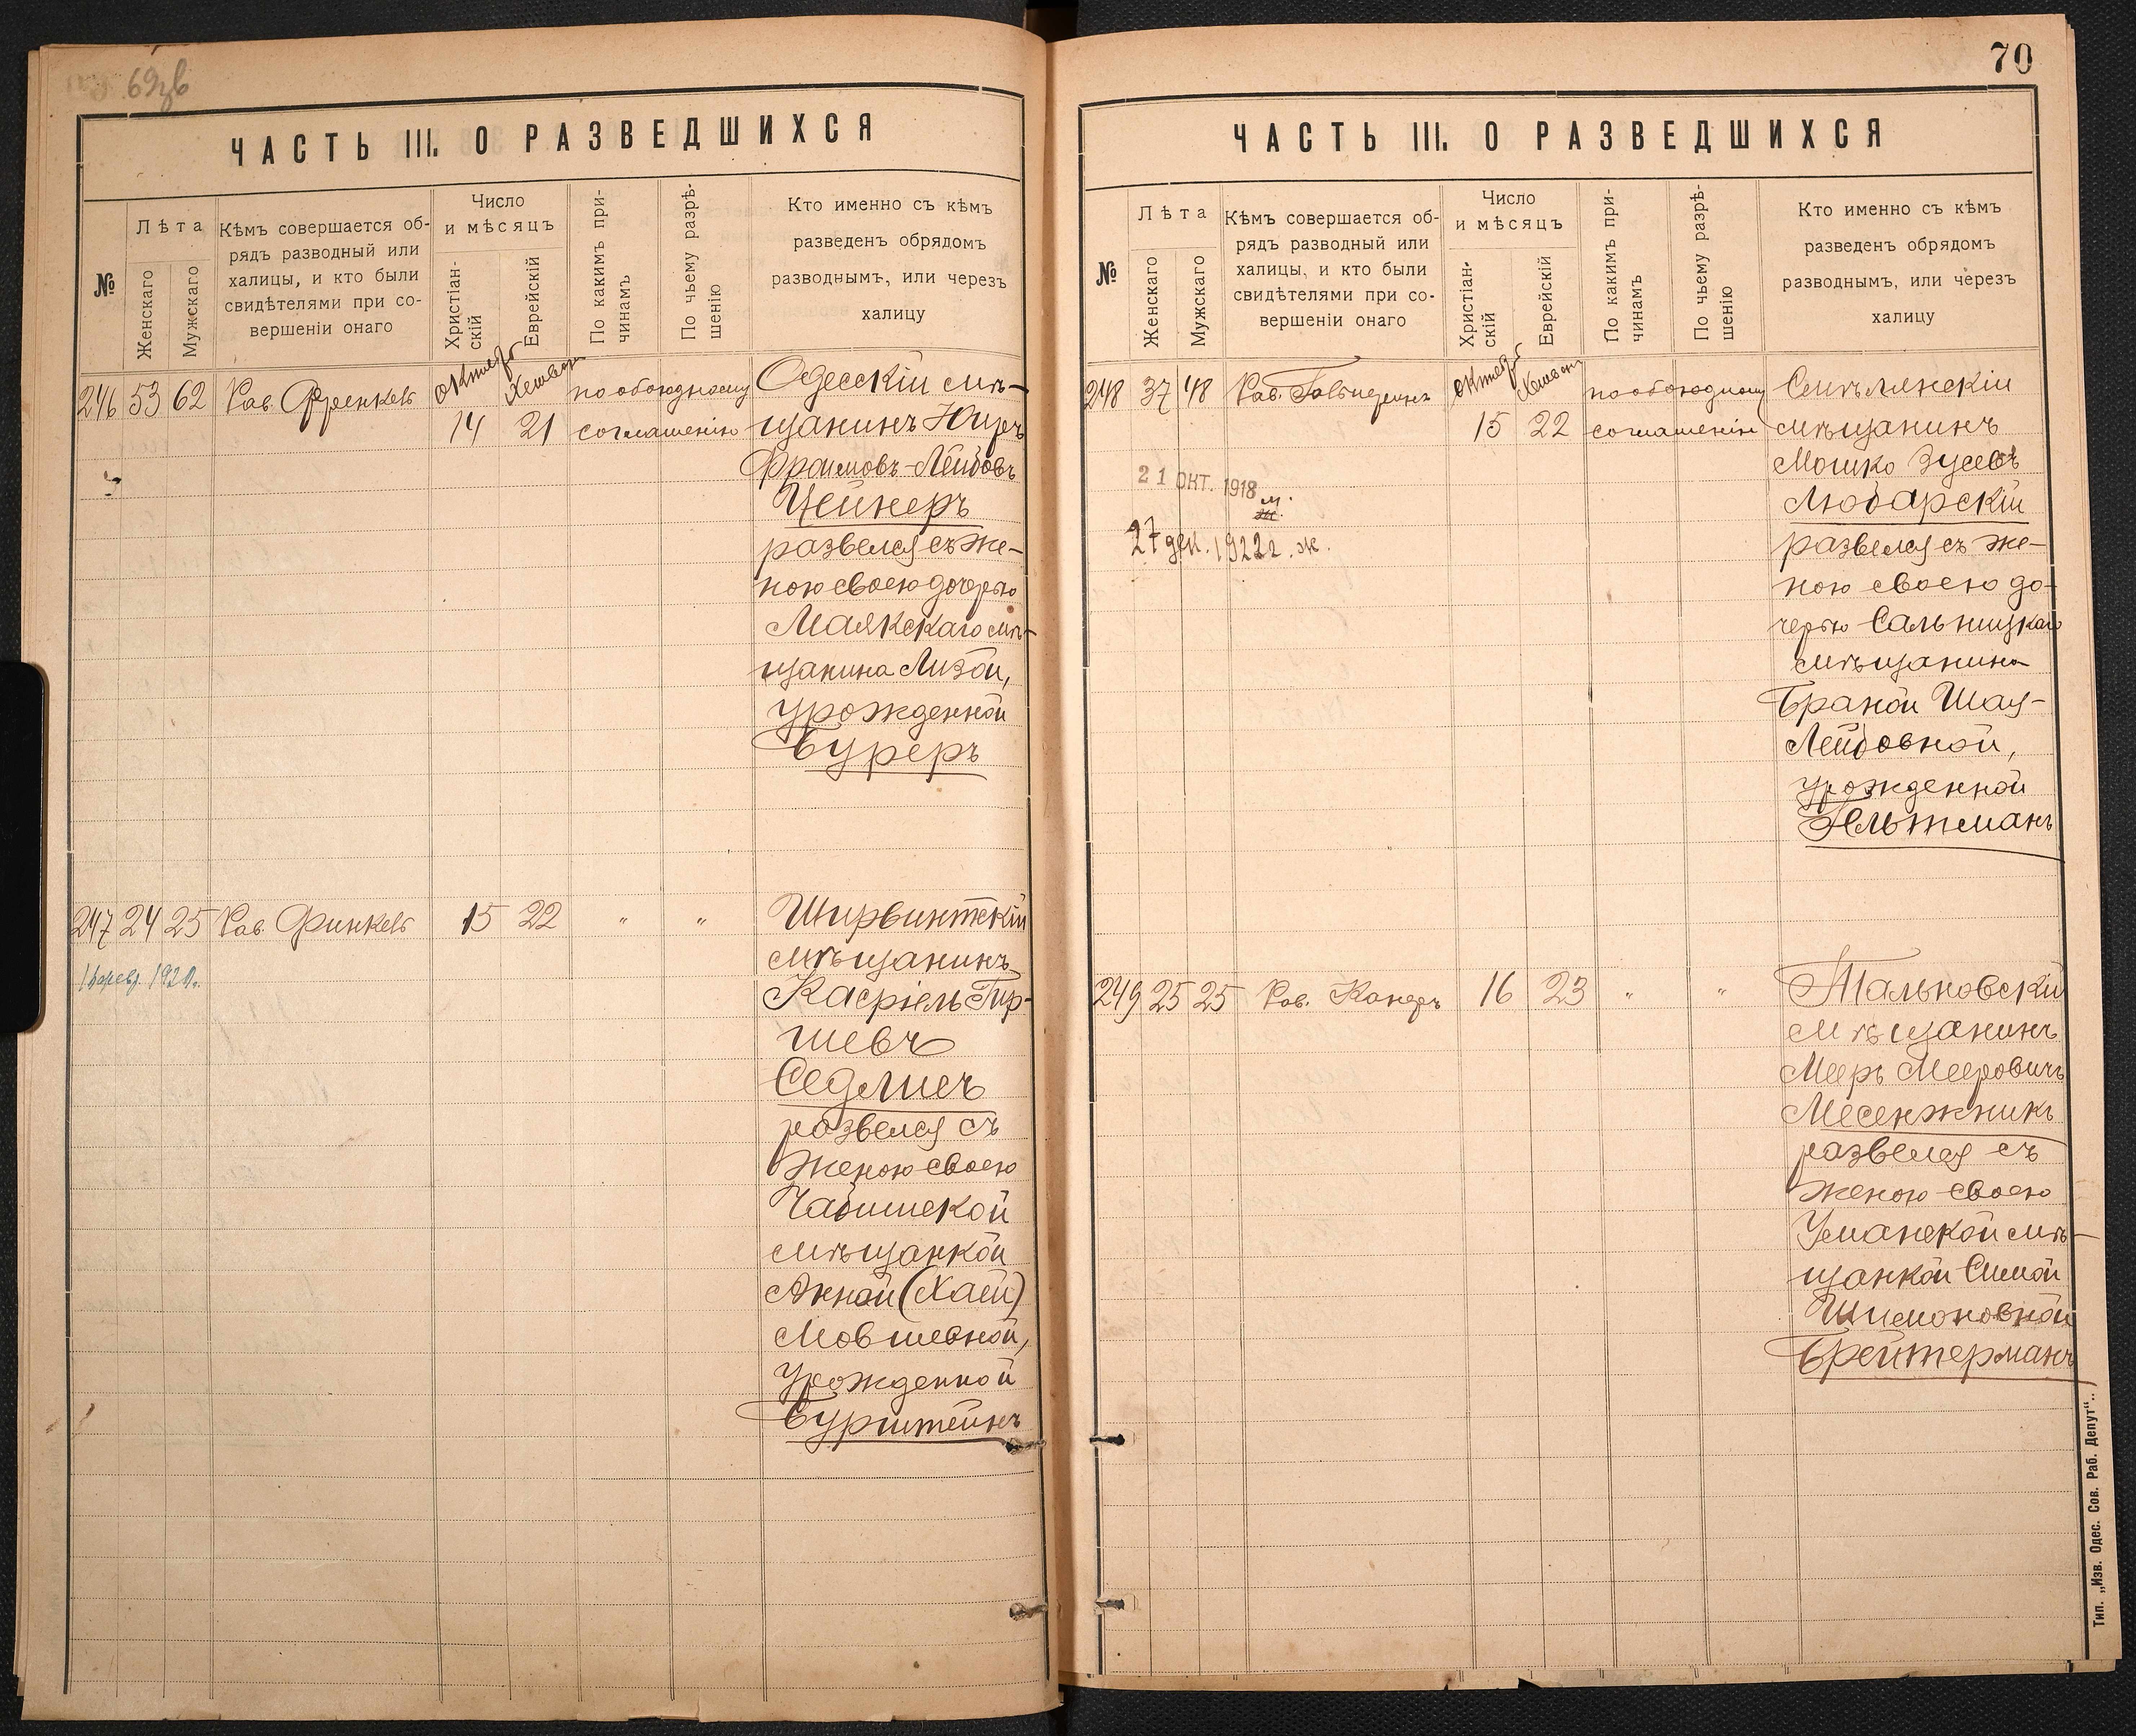 69зв
ЧАСТЬ III. О РАЗВЕДШИХСЯ
№
Лѣта
Женскаго
Мужскаго
Кѣмъ совершается об-
рядъ разводный или
халицы, и кто были
свидѣтелями при со-
вершеніи онаго
Число
и мѣсяцъ
Христіан-
скій
Еврейскій
По какимъ при-
чинамъ
По чьему разрѣ-
шенію
Кто именно съ кѣмъ
разведенъ обрядомъ
разводнымъ, или черезъ
халицу
246 53 62 Рав. Френкель
октяб Хешван
14 21
по обоюдному
соглашенію
Одесскій мѣ-
щанинъ
Фроимовъ-Лейбовъ
Цейнеръ
развелся съ же-
ною своею дочерью
Маякскаго мѣ-
щанина Лизой,
урожденной
Буреръ
247 24 25 Рав. Финкель 15 22 " "
1920.
Ширвинтскій
мѣщанинъ
Касріель Гир-
шевъ
Седлисъ
развелся съ
женою своею
мѣщанкой
Анной (Хаей)
Мовшевной,
урожденной
Бурштейнъ
70
ЧАСТЬ III. О РАЗВЕДШИХСЯ
№
Лѣта
Женскаго
Мужскаго
Кѣмъ совершается об-
рядъ разводный или
халицы, и кто были
свидѣтелями при со-
вершеніи онаго
Число
и мѣсяцъ
Христіан-
скій
Еврейскій
По какимъ при-
чинамъ
По чьему разрѣ-
шенію
Кто именно съ кѣмъ
разведенъ обрядомъ
разводнымъ, или черезъ
халицу
248 37 48 Рав.
октяб Хешван
15 22
по обоюдному
соглашенію
21 ОКТ. 1918 м.
27 дек. 1922г. ж.
Смѣлянскій
мѣщанинъ
Мошко Зусевъ
Любарскій
развелся съ же-
ною своею до-
черью Сальницкаго
мѣщанина
Браной Шая-
Лейбовной,
урожденной
Гельтманъ
249 25 25 Рав. Канеръ 16 23 " "
Тальновскій
мѣщанинъ
Мееръ Мееровичъ
Месенжникъ
развелся съ
женою своею
Уманской мѣ-
щанкой Симой
Шимоновной
Брейтерманъ
Тип. „Изв. Одес. Сов. Раб. Депут"..